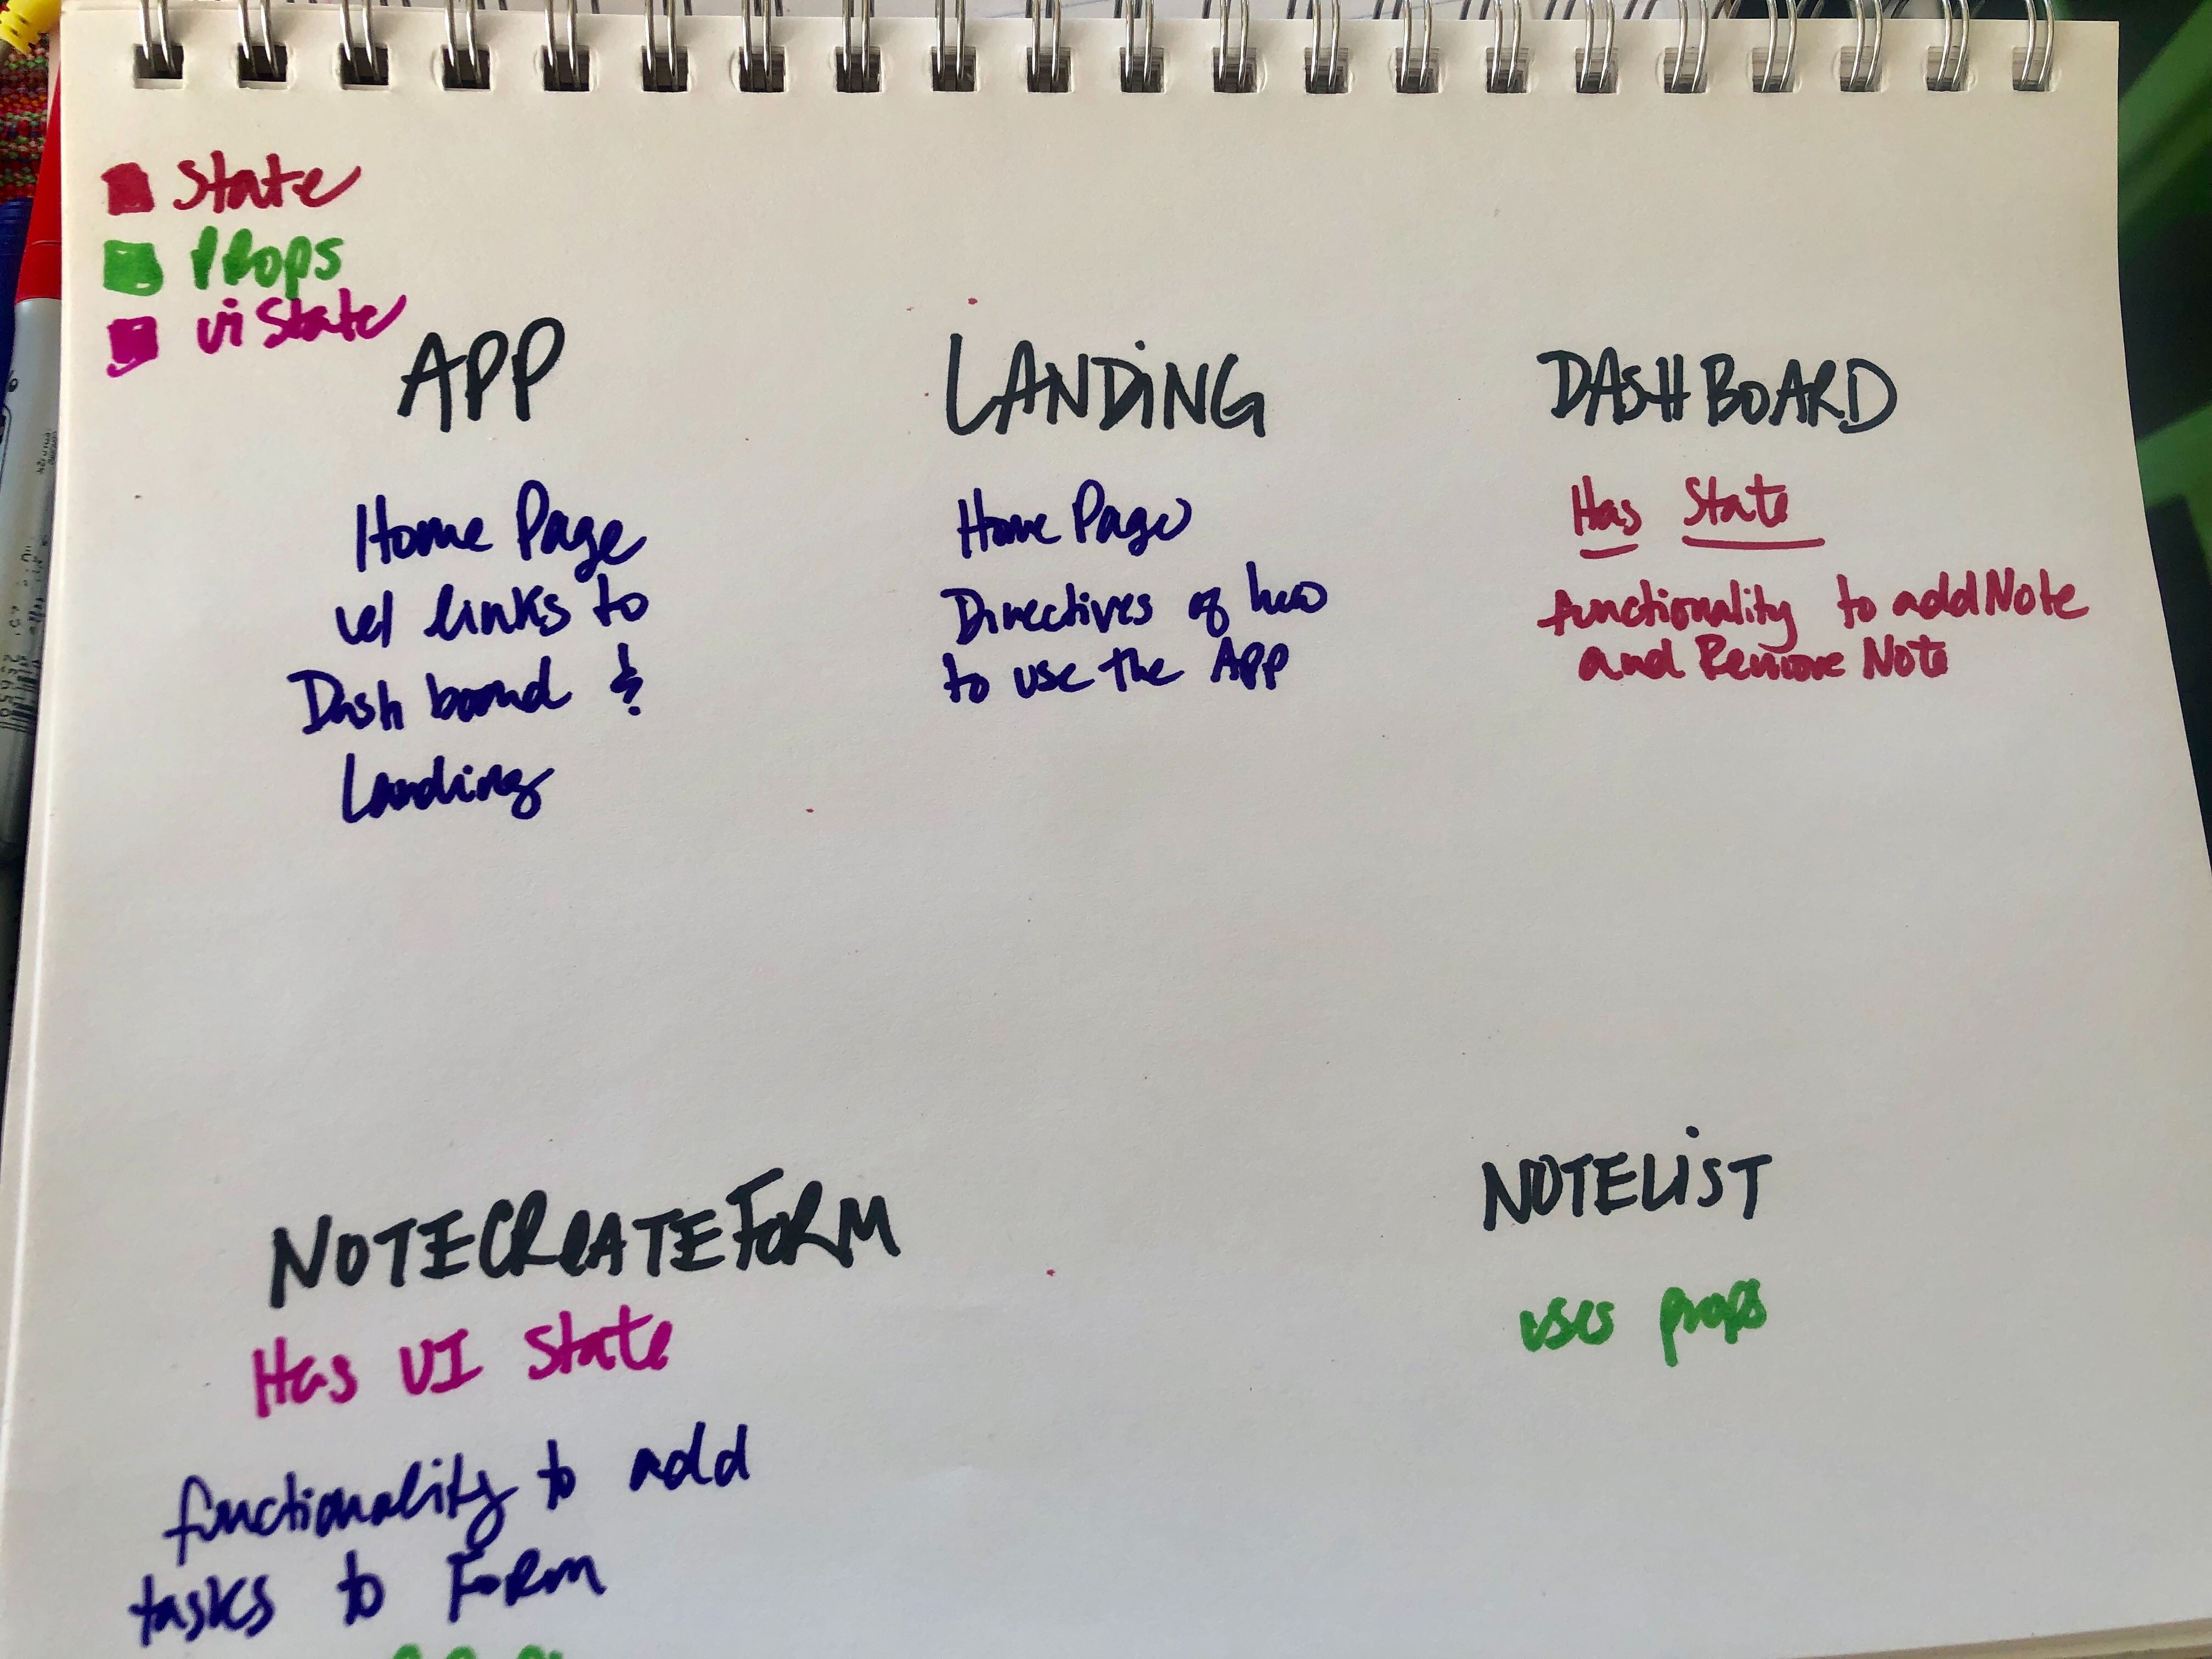 State
Props
ui State
APP
Home Page
w/ links to
Dash board &
Landing
LANDiNG
Home Page
Directives of how
to use the App
DASHBOARD
Has State
functionality to addNote
and Remove Note
NOTECREATEFORM
Has UI State
functionality to add
tasks to Form
NOTELiST
uses props